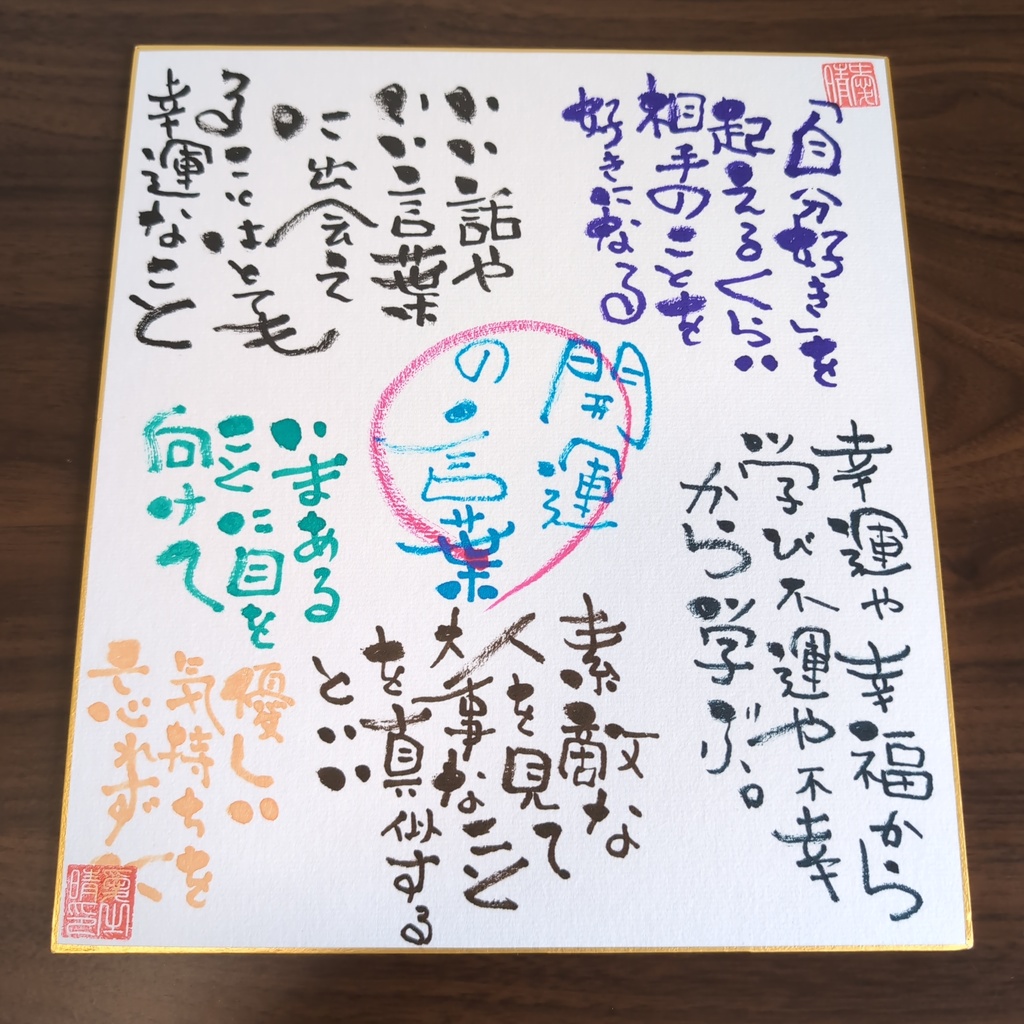 「自分好き」を
超えるくらい
相手のことを
好きになる
いい話や
いい言葉
に出会え
ることはとても
幸運なこと
開運
の言葉
幸運や幸福から
学び不運や不幸
から学ぶ。
いまある
ことに目を
向けて
素敵な
人を見て
大事なこと
を真似する
といい
優しい
気持ちを
忘れずに